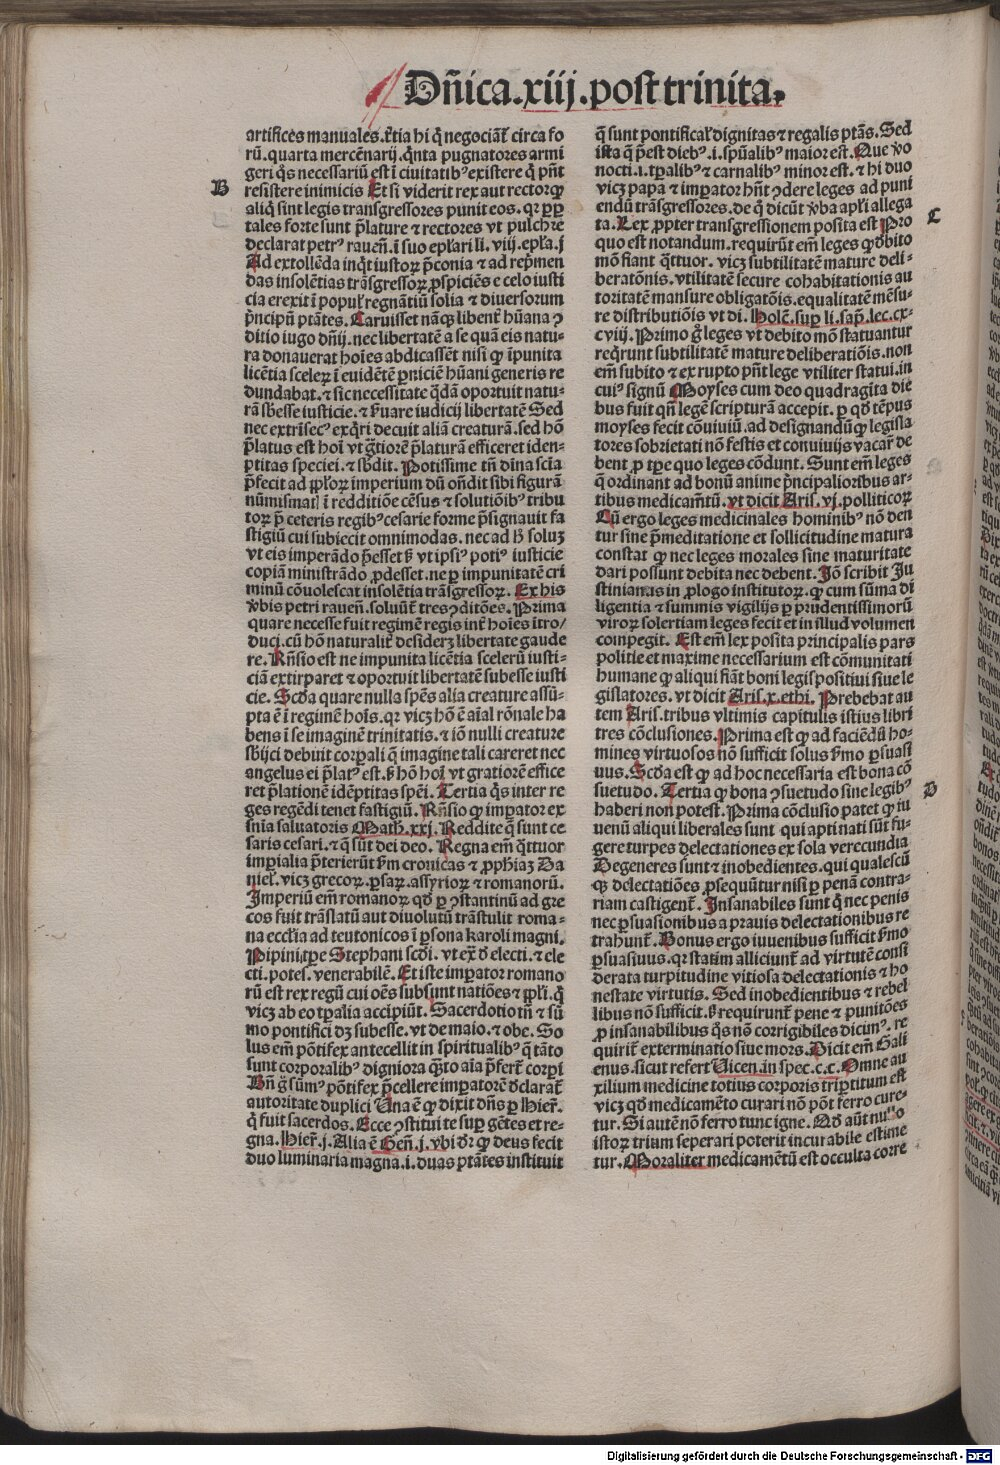 Dñica.xiij.post trinita.
artifices manuales.t̃tia hi q̃ negociãt̃ circa fo
rũ.quarta mercẽnarij.q̃nta pugnatores armi
geri q̃s necessariũ est ĩ ciuitatibꝰ existere q̃ pñt
B
resistere inimicis Et si viderit rex aut rectorqꝫ
aliq̃ sint legis transgressores punit eos.qꝛ ꝑp
tales forte sunt p̃lature ⁊ rectores vt pulchre
declarat petrꝰ raueñ.ĩ suo ep̃lari li.viij.ep̃la.j
Ad extollẽda inq̃t iustoꝝ p̃conia ⁊ ad rep̃men
das insolẽtias trãsgressoꝝ ꝓspiciẽs e celo iusti
cia erexit ĩ popul̃ regnãtiũ solia ⁊ diuersorum
p̃ncipũ ptãtes.Caruisset nãqꝫ libent̃ hũana ꝯ
ditio iugo dñij.nec libertatẽ a se quã eis natu-
ra donauerat hoĩes abdicassẽt nisi qꝫ ĩpunita
licẽtia sceleꝝ ĩ euidẽtẽ ꝑniciẽ hũani generis re
dundabat.⁊ sic necessitate q̃dã oportuit natu-
rã sb̃esse iusticie.⁊ ẜuare iudicij libertatẽ Sed
nec extrĩsecꝰ exq̃ri decuit aliã creaturã.sed hõ
p̃latus est hoĩ vt g̃tiorẽ p̃laturã efficeret iden-
ptitas speciei.⁊ sb̃dit.Potissime tñ diĩna scĩa
p̃fecit ad ꝓp̃loꝝ imperium dũ oñdit sibi figurã
nũmismatꝭ ĩ redditiõe cẽsus ⁊ solutiõibꝰ tribu
toꝝ p̃ ceteris regibꝰ cesarie forme p̃signauit fa
stigiũ cui subiecit omnimodas.nec ad h̃ soluꝫ
vt eis imperãdo p̃esset ẜ vt ipsiꝰ potiꝰ iusticie
copiã ministrãdo ꝓdesset.ne ꝑ impunitatẽ cri
minũ cõualescat insolẽtia trãsgressoꝝ.Ex his
v̾bis petri raueñ.soluũt̃ tres ꝯditões.Prima
quare necesse fuit regimẽ regis int̃ hoĩes ĩtro/
duci.cũ hõ naturalit̃ desideꝛꝫ libertate gaude
re.Rñsio est ne impunita licẽtia scelerũ iusti-
ciã extirparet ⁊ oportuit libertatẽ subesse iusti
cie.Scḋa quare nulla spẽs alia creature assũ-
pta ẽ ĩ regimẽ hoĩs.qꝛ vicꝫ hõ ẽ aĩal rõnale ha
bens ĩ se imaginẽ trinitatis.⁊ iõ nulli creature
sb̃ijci debuit corꝑali q̃ imagine tali careret nec
angelus ei p̃latꝰ est.ẜ hõ hoĩ vt gratiorẽ effice
ret p̃lationẽ idẽptitas spẽi.Tertia q̃s inter re
ges regẽdi tenet fastigiũ.Rñsio qꝫ imperator ex
sñia saluatoris Math̃.xxj.Reddite q̃ sunt ce
saris cesari.⁊ q̃ sũt dei deo.Regna em̃ q̃ttuor
imꝑialia p̃terierũt ẜm cronicas ⁊ ꝓphiaꝫ Da
niel̃.vicꝫ grecoꝝ.ꝑsaꝝ.assyrioꝝ ⁊ romanorũ.
Imperiũ em̃ romanoꝝ qḋ ꝑ ꝯstantinũ ad gre
cos fuit trãslatũ aut diuolutũ trãstulit roma-
na eccl̃ia ad teutonicos ĩ ꝑsona karoli magni.
Pipini tꝑe Stephani scḋi.vt ex̃ ḋ electi.⁊ ele
cti.potes.venerabilẽ.Et iste imꝑator romano
rũ est rex regũ cui oẽs subsunt natiões ⁊ ꝓp̃li.q̃
vicꝫ ab eo tꝑalia accipiũt.Sacerdotio tñ ⁊ sũ
mo pontifici dꝫ subesse.vt de maio.⁊ obe.So
lus em̃ põtifex antecellit in spiritualibꝰ q̃ tãto
sunt corporalibꝰ digniora q̃to aĩa p̃fert̃ corpi
Uñ g̃ sũmꝰ põtifex p̃cellere imꝑatorẽ ḋclarat̃
autoritate duplici Una ẽ qꝫ dixit dñs ꝑ Hieř.
q̃ fuit sacerdos.Ecce ꝯstitui te suꝑ gẽtes et re-
gna.Hieř.j.Alia ẽ Geñ.j.vbi dř qꝫ deus fecit
duo luminaria magna.i.duas ptãtes instituit
q̃ sunt pontificał dignitas ⁊ regalis ptãs.Sed
ista q̃ p̃est diebꝰ.i.spũalibꝰ maior est.Que v̾o
nocti.i.tꝑalibꝰ ⁊ carnalibꝰ minor est.⁊ hi duo
vicꝫ papa ⁊ imꝑator hñt ꝯdere leges ad puni
endũ trãsgressores.de q̃ dicũt v̾ba apl̃i allega
C
ta.Lex ꝓpter transgressionem posita est Pro
quo est notandum.requirũt em̃ leges qꝫ ḋbito
mõ fiant q̃ttuor.vicꝫ subtilitatẽ mature deli-
beratõnis.vtilitatẽ secure cohabitationis au
toritatẽ mansure obligatõis.equalitatẽ mẽsu-
re distributiõis vt di.Holc̃.suꝑ li.sap̃.lec.cx-
cviij.Primo g̃ leges vt debito mõ statuantur
req̃runt subtilitatẽ mature deliberatiõis.non
em̃ subito ⁊ ex rupto pñt lege vtiliter statui.in
cuiꝰ signũ Moyses cum deo quadragĩta die
bus fuit qñ legẽ scripturã accepit.ꝑ qḋ tẽpus
moyses fecit cõuiuiũ.ad designandũ qꝫ legisla
tores sobrietati nõ festis et conuiuijs vacař de
bent ꝓ tꝑe quo leges cõdunt.Sunt em̃ leges
q̃ ordinant ad bonũ anime p̃ncipalioribus ar-
tibus medicam̃tũ.vt dicit Aris.vj.politicoꝝ
Cũ ergo leges medicinales hominibꝰ nõ den
tur sine p̃meditatione et sollicitudine matura
constat qꝫ nec leges morales sine maturitate
dari possunt debita nec debent.Iõ scribit Ju
stinianus in ꝓlogo institutoꝝ.qꝫ cum sũma di
ligentia ⁊ summis vigilijs ꝑ prudentissimorũ
viroꝝ solertiam leges fecit et in illud volumen
compegit.Est em̃ lex posita principalis pars
politie et maxime necessarium est cõmunitati
humane qꝫ aliqui fiãt boni legis positiui siue le
gislatores.vt dicit Aris.x.ethi.Prebebat au
tem Aris.tribus vltimis capitulis istius libri
tres cõclusiones.Prima est qꝫ ad faciẽdũ ho-
mines virtuosos nõ sufficit solus ẜmo ꝑsuasi
uus.Scḋa est qꝫ ad hoc necessaria est bona cõ
D
suetudo.Tertia qꝫ bona ꝯsuetudo sine legibꝰ
haberi non potest.Prima cõclusio patet qꝫ iu
uenũ aliqui liberales sunt qui apti nati sũt fu-
gere turpes delectationes ex sola verecundia
Degeneres sunt ⁊ inobedientes.qui qualescũ
qꝫ delectatiões ꝓsequũtur nisi ꝑ penã contra-
riam castigent̃.Insanabiles sunt q̃ nec penis
nec ꝑsuasionibus a prauis delectationibus re
trahunt̃.Bonus ergo iuuenibus sufficit ẜmo
ꝑsuasiuus.qꝛ statim alliciunt̃ ad virtutẽ consi
derata turpitudine vitiosa delectationis ⁊ ho
nestate virtutis.Sed inobedientibus ⁊ rebel
libus nõ sufficit.ẜ requirunt̃ pene ⁊ punitões
ꝓ insanabilibus q̃s nõ corrigibiles dicimꝰ.re
quirit̃ exterminatio siue mors.Dicit em̃ Gali
enus.sicut refert Uicen.in spec.c.c.Omne au
xilium medicine totius corporis triꝑtitum est
vicꝫ qḋ medicamẽto curari nõ põt ferro cure-
tur.Si autẽ nõ ferro tunc igne.Qḋ aũt nullo
istoꝝ trium seperari poterit incurabile estime
tur.Moraliter medicamẽtũ est occulta corre
Digitalisierung gefördert durch die Deutsche Forschungsgemeinschaft - DFG